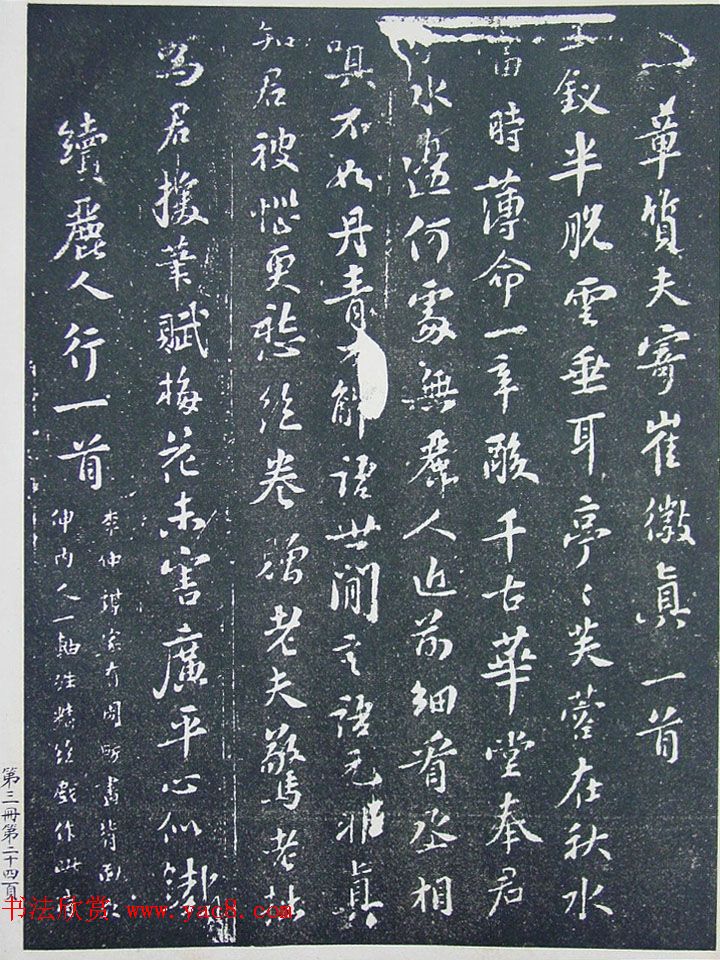 章質夫寄崔徽真一首
玉釵半脫雲垂耳亭〻芙蓉在秋水
當時薄命一辛酸千古華堂奉君
水邊何處無麗人近前細看丞相
嗔不如丹青不解語世間言語元非真
知君被惱更愁絕卷贈老夫驚老拙
為君援筆賦梅花未害廣平心似鐵
續麗人行一首
李仲謀家有周昉畫背面欠
伸內人一軸極精絕戲作此詩
第三冊第二十四頁
书法欣赏 www.yac8.com